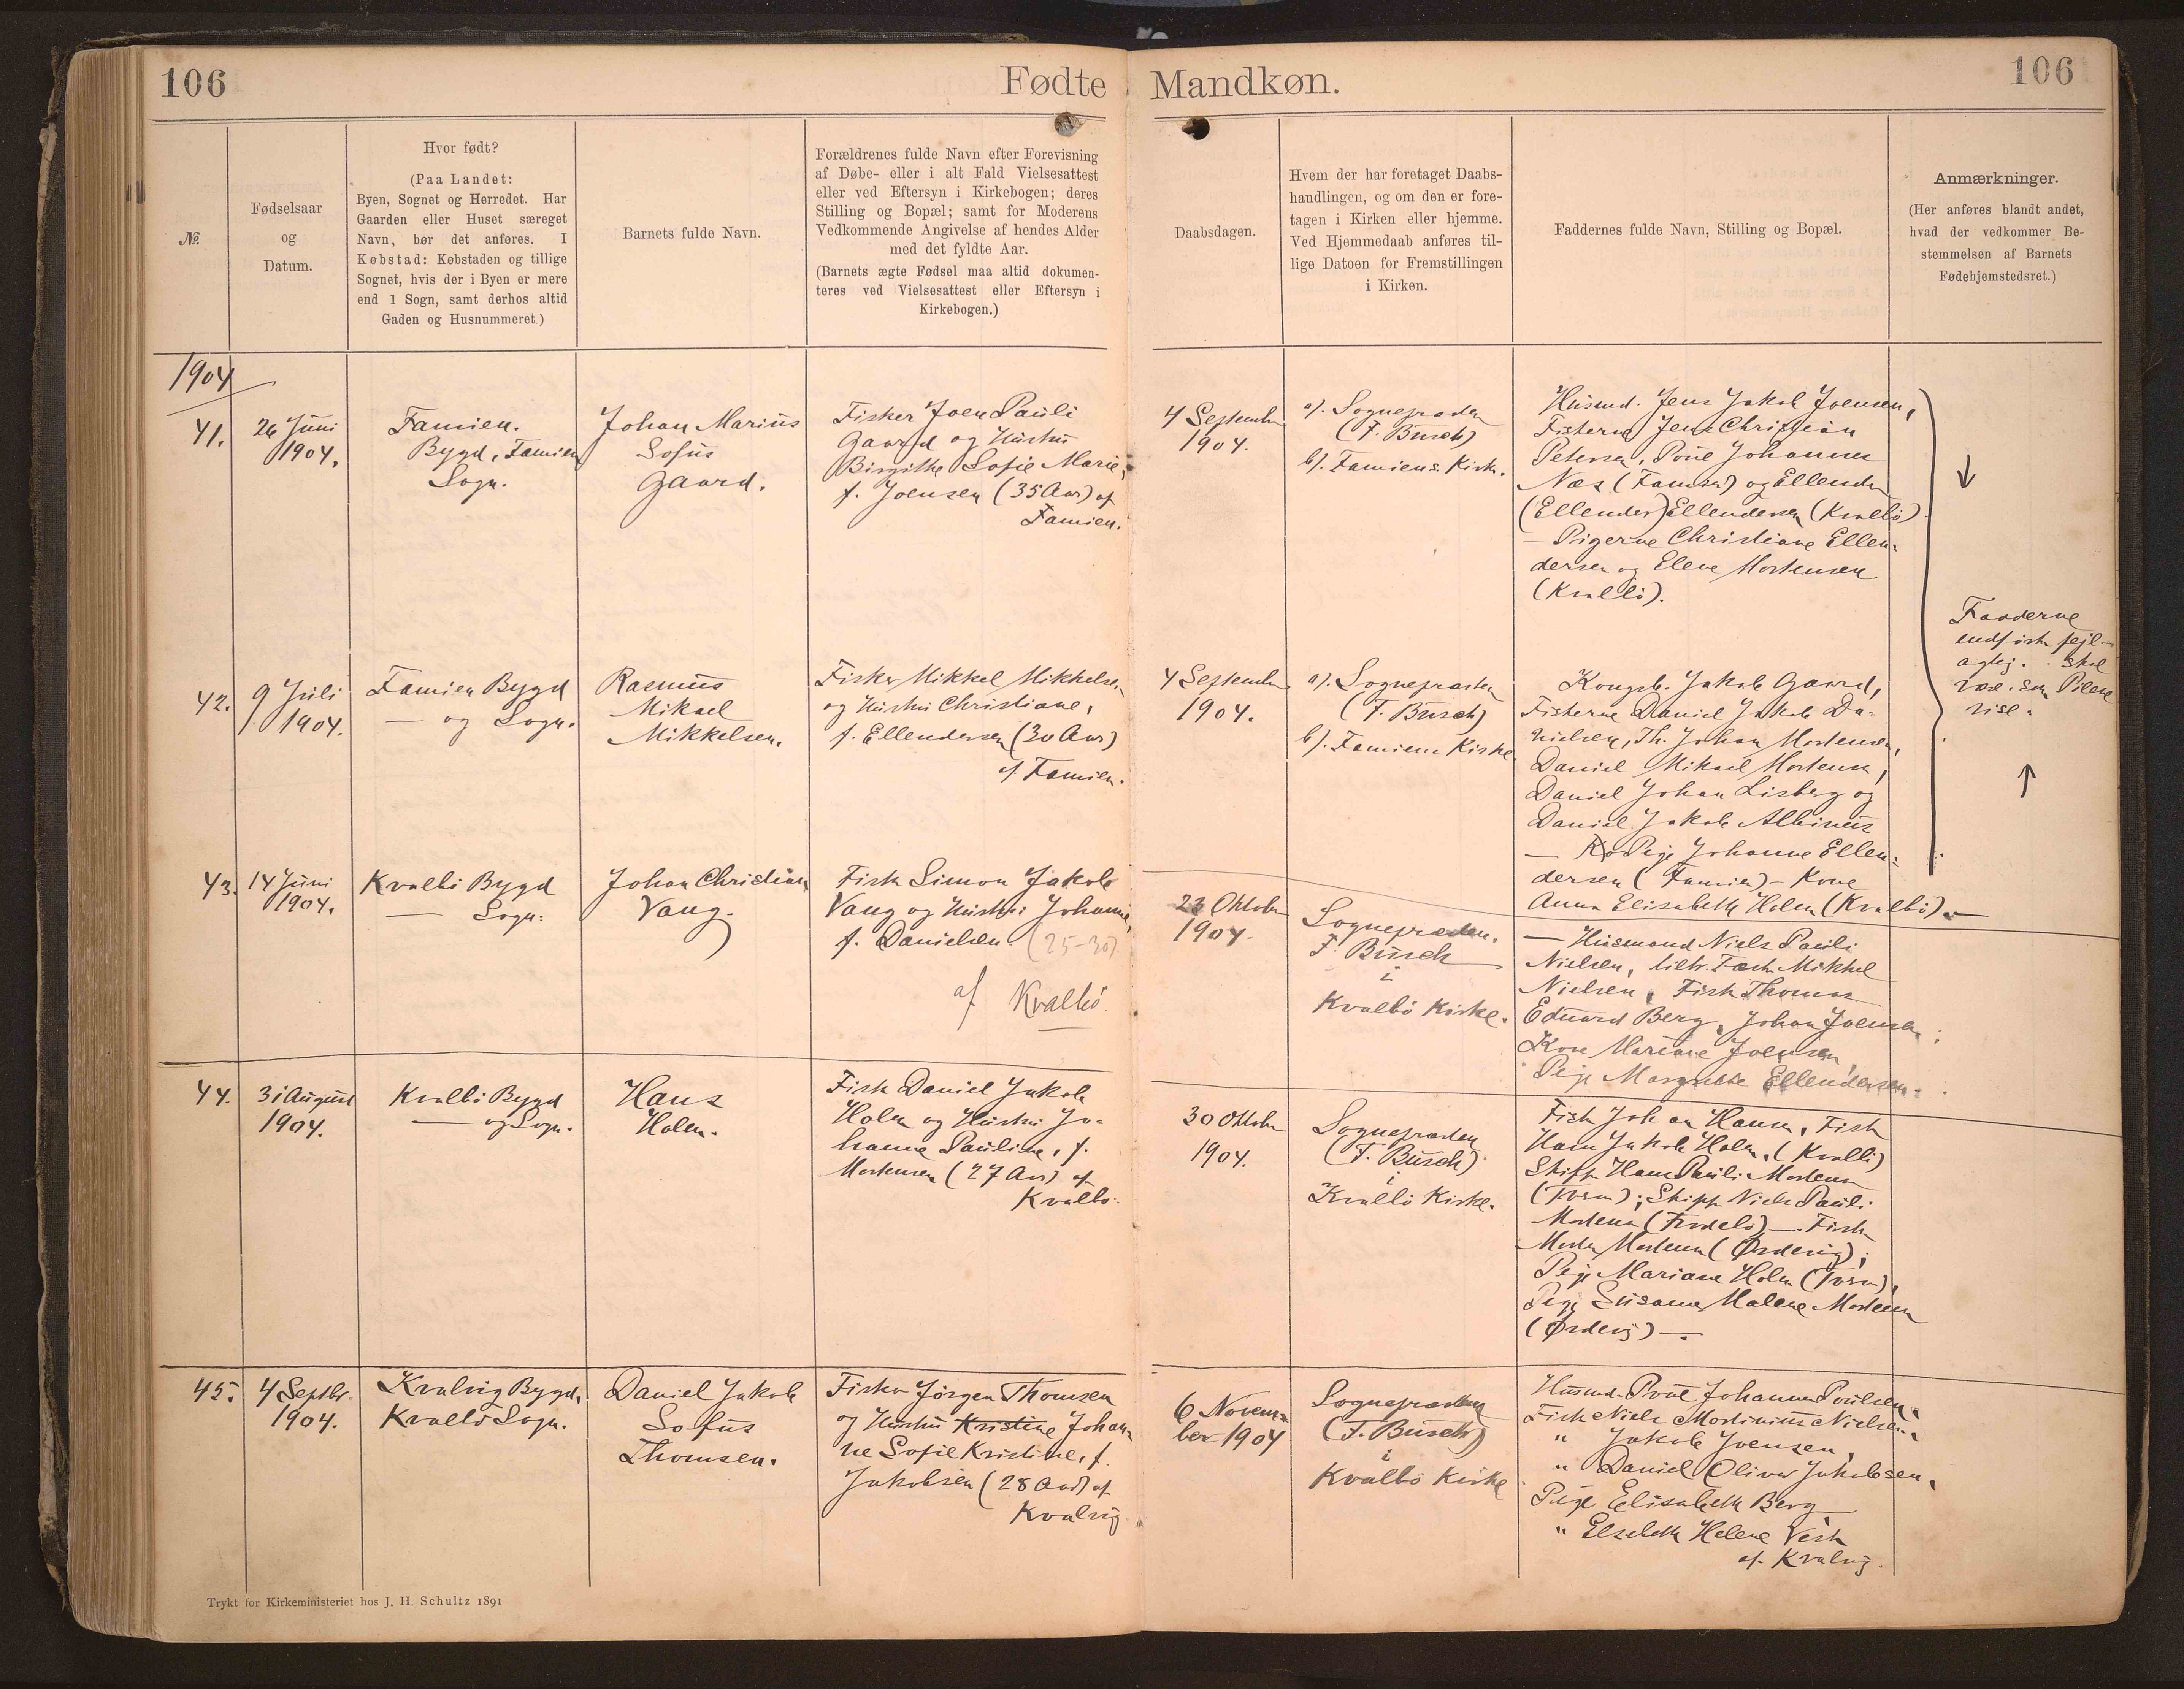 106
Fødte
Mandkøn.
106
№
Fødselsaar
og
Datum.
Hvor født?
(Paa Landet:
Byen, Sognet og Herredet. Har
Gaarden eller Huset særeget
Navn, bør det anføres. I
Købstad: Købstaden og tillige
Sognet, hvis der i Byen er mere
end 1 Sogn, samt derhos altid
Gaden og Husnummeret.)
Barnets fulde Navn.
Forældrenes fulde Navn efter Forevisning
af Døbe- eller i alt Fald Vielsesattest
eller ved Eftersyn i Kirkebogen; deres
Stilling og Bopæl; samt for Moderens
Vedkommende Angivelse af hendes Alder
med det fyldte Aar.
(Barnets ægte Fødsel maa altid dokumen-
teres ved Vielsesattest eller Eftersyn i
Kirkebogen.)
Daabsdagen.
Hvem der har foretaget Daabs-
handlingen, og om den er fore-
tagen i Kirken eller hjemme.
Ved Hjemmedaab anføres til-
lige Datoen for Fremstillingen
i Kirken.
Faddernes fulde Navn, Stilling og Bopæl.
Anmærkninger.
(Her anføres blandt andet,
hvad der vedkommer Be-
stemmelsen af Barnets
Fødehjemstedsret.)
1904
41.
26 Juni
1904.
Famien.
Bygd, Famien
Sogn.
Johan Marius
Sofus
Gaard.
Fisker Joen Pauli
Gaard og Hustru
Birgithe Sofie Marie,
f. Joensen (35 Aar) af
Famien.
4 September
1904.
a). Sognepræsten
(F. Busch)
b). Famiens Kirke.
Husmd. Jens Jakob Joensen,
Fiskerne Jens Christian
Petersen, Poul Johannes
Næs (Famien) og Ellender
(Ellender) Ellendersen (Kvalbø).
— Pigerne Christiane Ellen-
dersen og Elene Mortensen
(Kvalbø).
42.
9 Juli
1904.
Famien Bygd
— og Sogn.
Rasmus
Mikael
Mikkelsen.
Fisker Mikkel Mikkelsen
og Hustru Christiane,
f. Ellendersen (30 Aar)
af Famien.
4 September
1904.
a). Sognepræsten
(F. Busch)
b). Famiens Kirke
Kongsb. Jakob Gaard,
Fiskerne Daniel Jakob Da-
nielsen, Th. Johan Mortensen,
Daniel Mikael Mortensen,
Daniel Johan Lisberg og
Daniel Jakob Albinus
— Pige Johanne Ellen-
dersen (Famien) – Kone
Anna Elisabeth Holm (Kvalbø). —
Fadderne
indførte fejl-
agtig. skal
være som Pilene
vise.
43.
14 Juni
1904.
Kvalbø Bygd
— Sogn.
Johan Christian
Vang.
Fisk Simon Jakob
Vang og Hustru Johanne,
f. Danielsen (25–30)
af Kvalbø.
23 Oktober
1904.
Sognepræsten.
F. Busch
i
Kvalbø Kirke.
— Husmand Niels Pauli
Nielsen, Fæst. Mikkel
Nielsen, Fisk Thomas
Eduard Berg, Johan Joensen;
Kone Mariane Joensen,
Pige Margrethe Ellendersen.
44.
31 August
1904.
Kvalbø Bygd
— og Sogn.
Hans
Holm.
Fisk Daniel Jakob
Holm og Hustru Jo-
hanne Pauline, f.
Mortensen (27 Aar) af
Kvalbø.
30 Oktober
1904.
Sognepræsten
(F. Busch)
i
Kvalbø Kirke.
Fisk Johan Hansen, Fisk
Hans Jakob Holm, (Kvalbø)
Skipp Hans Pauli Mortensen
(Tvrm); Skipp Niels Pauli
Mortensen (Frodebø) —. Fisk
Morten Mortensen (Ørdevig);
Pige Mariane Holm (Tvrm),
Pige Susanna Malene Mortensen
(Ørdevig) —.
45.
4 Septbr.
1904.
Kvalvig Bygd,
Kvalbø Sogn.
Daniel Jakob
Sofus
Thomsen.
Fisker Jørgen Thomsen
og Hustru Kristine Johan-
ne Sofie Kristine, f.
Jakobsen (28 Aar) af
Kvalvig.
6 Novem-
ber 1904
Sognepræsten
(F. Busch)
i
Kvalbø Kirke
Husmd. Poul Johannes Poulsen,
Fisk Niels Mortinius Nielsen,
" Jakob Joensen,
" Daniel Oliver Jakobsen,
Pige Elisabeth Berg
" Elsebeth Helene Vest
af Kvalvig.
Trykt for Kirkeministeriet hos J. H. Schultz 1891